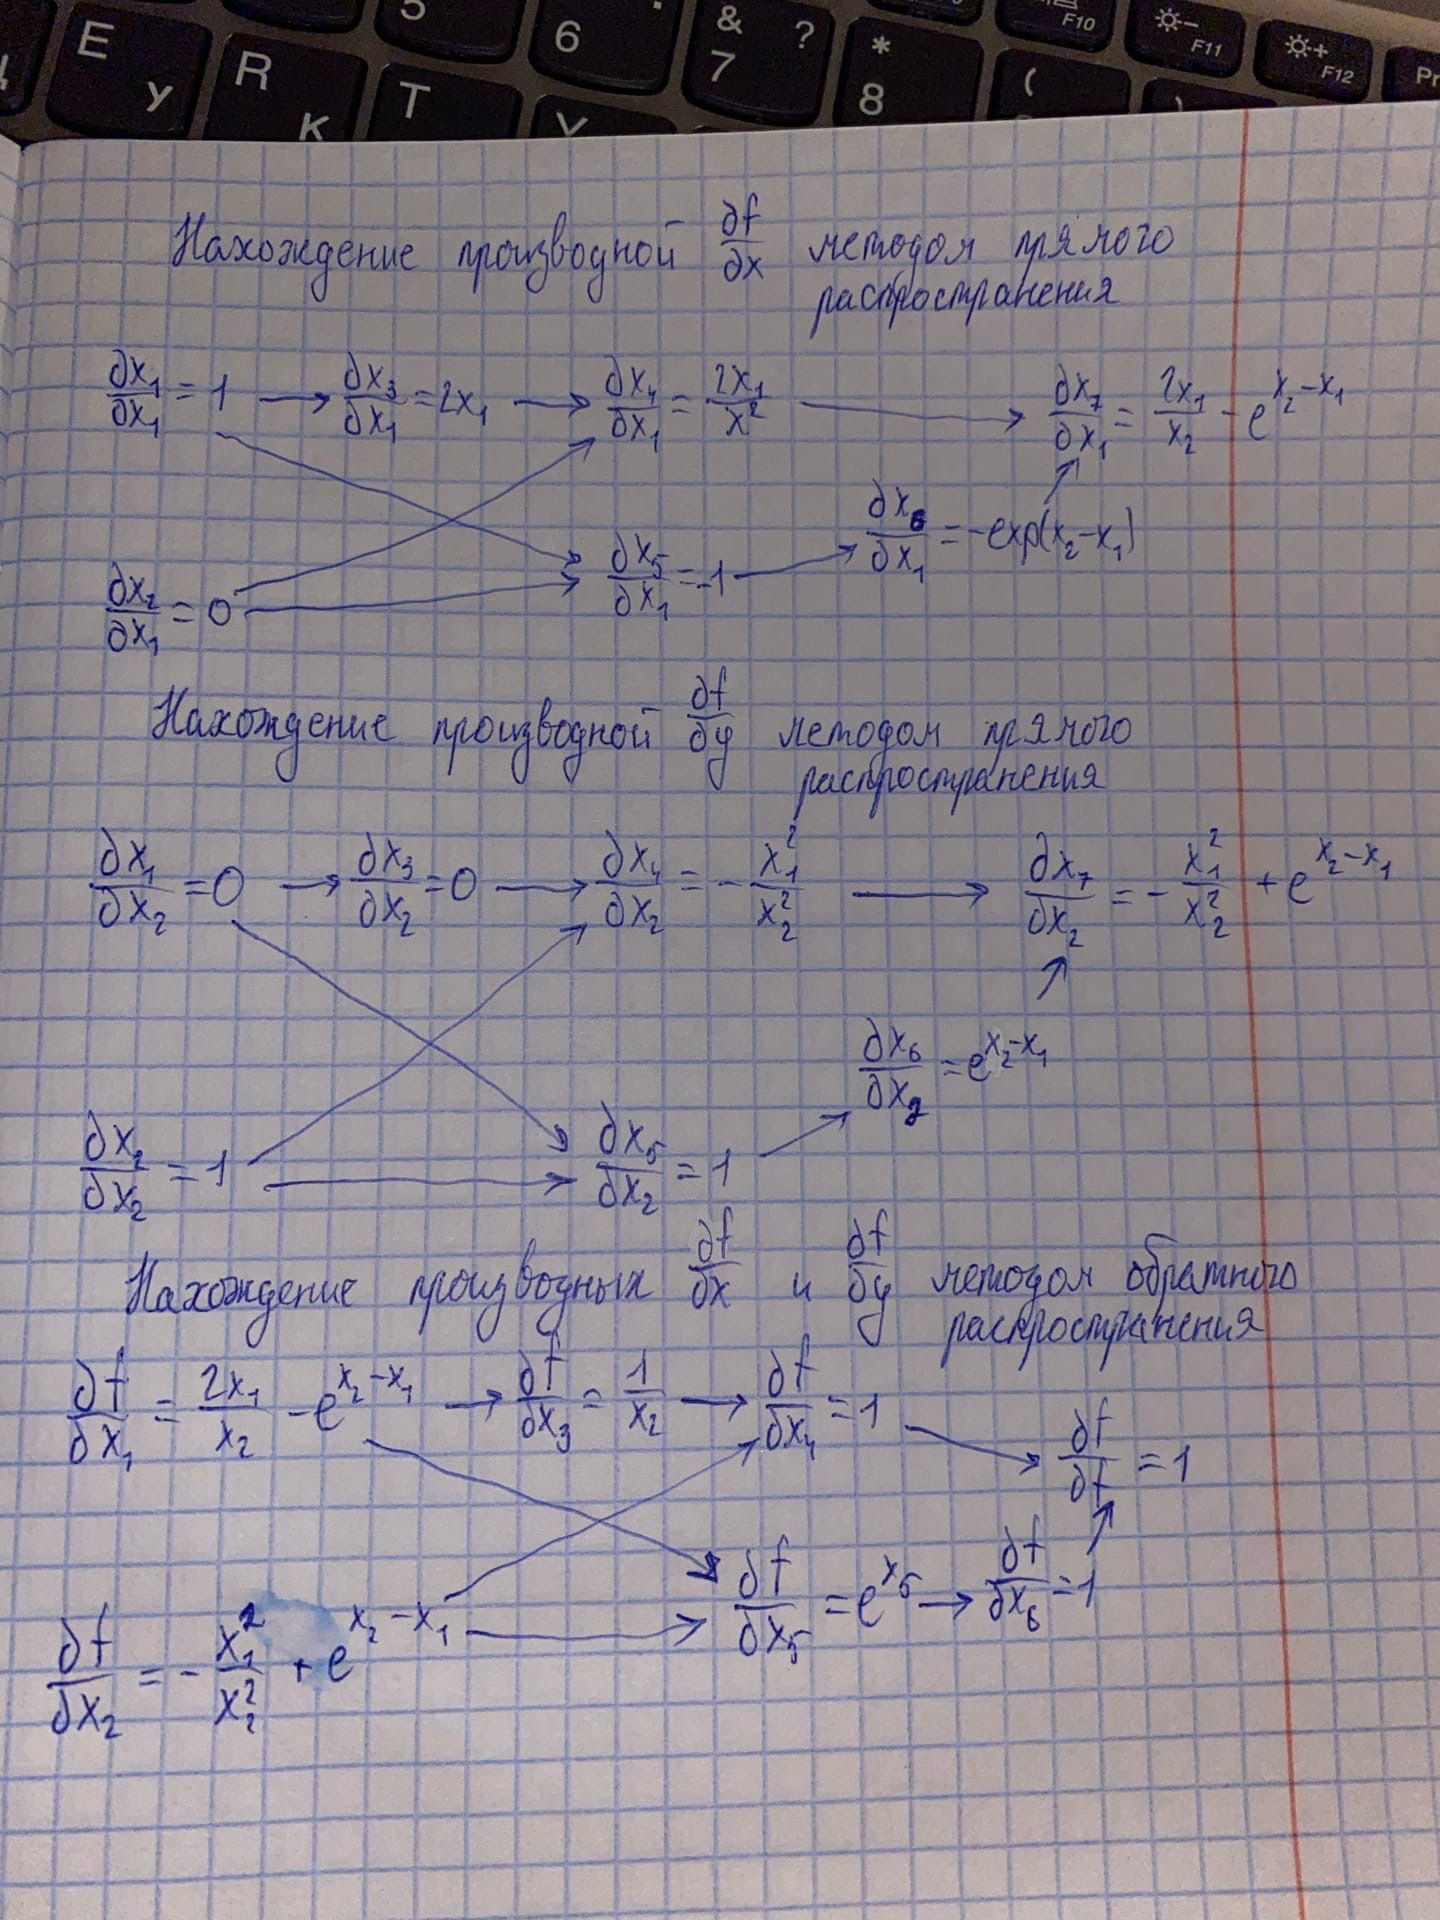 E У
R К
T
5
6
& 7 ?
* 8
(
)
F10
F11
F12
Pr
Нахождение производной ∂f/∂x методом прямого
распространения
∂x₁/∂x₁ = 1 → ∂x₃/∂x₁ = 2x₁ → ∂x₄/∂x₁ = 2x₁/x² → ∂x₇/∂x₁ = 2x₁/x₂ - e^(x₂-x₁)
∂x₆/∂x₁ = -exp(x₂-x₁)
∂x₂/∂x₁ = 0 → ∂x₅/∂x₁ = -1
Нахождение производной ∂f/∂y методом прямого
распространения
∂x₁/∂x₂ = 0 → ∂x₃/∂x₂ = 0 → ∂x₄/∂x₂ = - x₁²/x₂² → ∂x₇/∂x₂ = - x₁²/x₂² + e^(x₂-x₁)
∂x₆/∂x₂ = e^(x₂-x₁)
∂x₂/∂x₂ = 1 → ∂x₅/∂x₂ = 1
Нахождение производных ∂f/∂x и ∂f/∂y методом обратного
распространения
∂f/∂x₁ = 2x₁/x₂ - e^(x₂-x₁) → ∂f/∂x₃ = 1/x₂ → ∂f/∂x₄ = 1 → ∂f/∂f = 1
∂f/∂x₂ = - x₁²/x₂² + e^(x₂-x₁) → ∂f/∂x₅ = e^(x₅) → ∂f/∂x₆ = 1